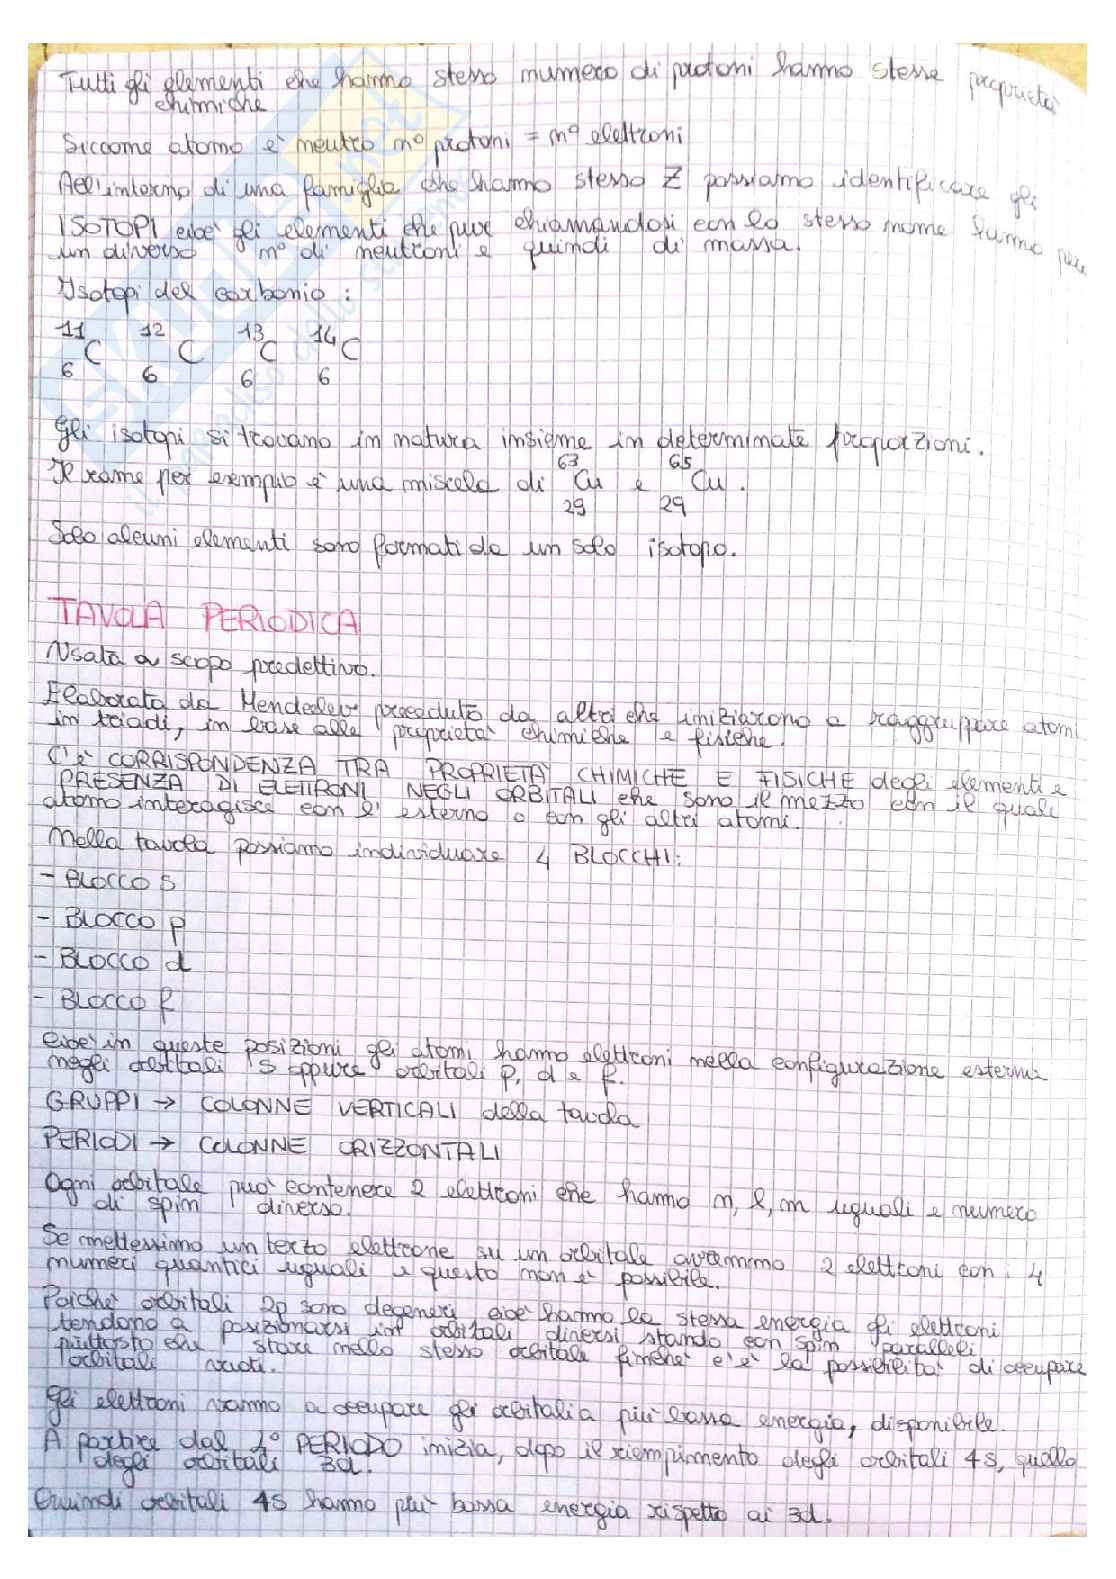 Tutti gli elementi che hanno stesso numero di protoni hanno stesse proprietà
chimiche
Siccome atomo è neutro n° protoni = n° elettroni
All'interno di una famiglia che hanno stesso Z possiamo identificare gli
ISOTOPI cioè gli elementi che pur chiamandosi con lo stesso nome hanno però
un diverso n° di neutroni e quindi di massa.
Isotopi del carbonio :
11 12 13 14
C C C C
6 6 6 6
Gli isotopi si trovano in natura insieme in determinate proporzioni.
63 65
Il rame per esempio è una miscela di Cu e Cu .
29 29
Solo alcuni elementi sono formati da un solo isotopo.
TAVOLA PERIODICA
Usata a scopo predettivo.
Elaborata da Mendeleev preceduto da altri che iniziarono a raggruppare atomi
in triadi, in base alle proprietà chimiche e fisiche.
C'è CORRISPONDENZA TRA PROPRIETÀ CHIMICHE E FISICHE degli elementi e
PRESENZA DI ELETTRONI NEGLI ORBITALI che sono il mezzo con il quale
atomo interagisce con l'esterno o con gli altri atomi.
Nella tavola possiamo individuare 4 BLOCCHI:
- BLOCCO s
- BLOCCO p
- BLOCCO d
- BLOCCO f
cioè in queste posizioni gli atomi hanno elettroni nella configurazione esterna
negli orbitali s oppure orbitali p, d e f.
GRUPPI → COLONNE VERTICALI della tavola
PERIODI → COLONNE ORIZZONTALI
Ogni orbitale può contenere 2 elettroni che hanno n, l, m uguali e numero
di spin diverso.
Se mettessimo un terzo elettrone su un orbitale avremmo 2 elettroni con i 4
numeri quantici uguali e questo non è possibile.
Poiché orbitali 2p sono degeneri cioè hanno la stessa energia gli elettroni
tendono a posizionarsi in orbitali diversi stando con spin paralleli
piuttosto che stare nello stesso orbitale finché c'è la possibilità di occupare
orbitali vuoti.
Gli elettroni vanno a occupare gli orbitali a più bassa energia, disponibile.
A partire dal 4° PERIODO inizia, dopo il riempimento degli orbitali 4s, quello
degli orbitali 3d.
Quindi orbitali 4s hanno più bassa energia rispetto ai 3d.